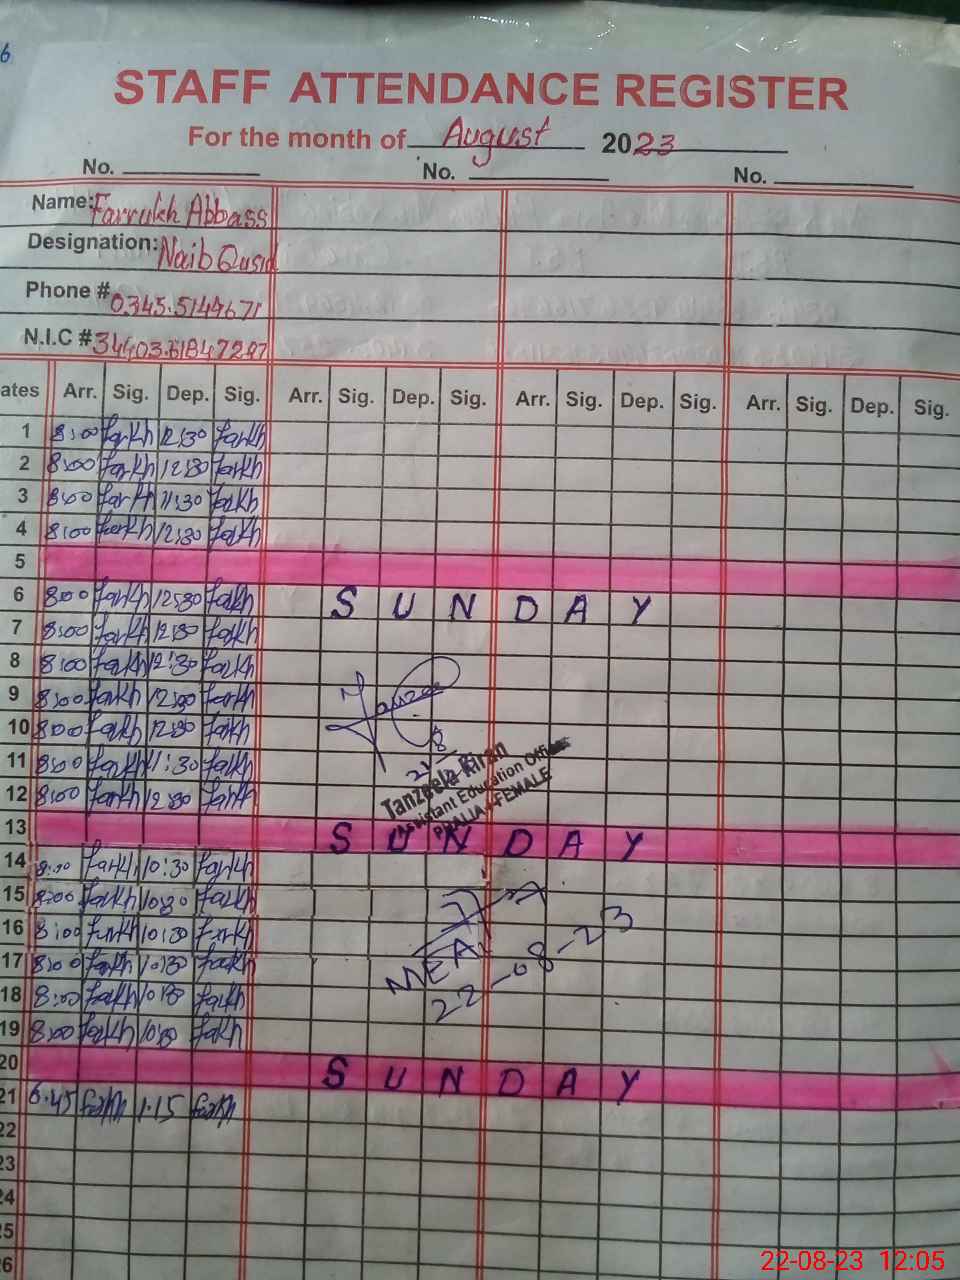 6
STAFF ATTENDANCE REGISTER
For the month of August 2023
No. No. No.
Name: Farrukh Abbass
Designation: Naib Qusid
Phone # 0345.5144671
N.I.C # 34403.61847297
ates Arr. Sig. Dep. Sig. Arr. Sig. Dep. Sig. Arr. Sig. Dep. Sig. Arr. Sig. Dep. Sig.
1 8:00 farkh 12:30 farkh
2 8:00 farkh 12:30 farkh
3 8:00 farkh 11:30 farkh
4 8:00 farkh 12:30 farkh
5
6 8:00 farkh 12:30 farkh SUNDAY
7 8:00 farkh 12:30 farkh
8 8:00 farkh 12:30 farkh
9 8:00 farkh 12:00 farkh
10 8:00 farkh 12:30 farkh
11 8:00 farkh 11:30 farkh
12 8:00 farkh 12:30 farkh
21-8
Tanzeela Kiran
Assistant Education Officer
PHALIA - FEMALE
13 SUNDAY
14 8:00 farkh 10:30 farkh
15 8:00 farkh 10:30 farkh
16 8:00 farkh 10:30 farkh
17 8:00 farkh 10:30 farkh
18 8:00 farkh 10:30 farkh
19 8:00 farkh 10:30 farkh
MEA
22-08-23
20 SUNDAY
21 6.45 farkh 1.15 farkh
22
23
24
25
6
22-08-23 12:05